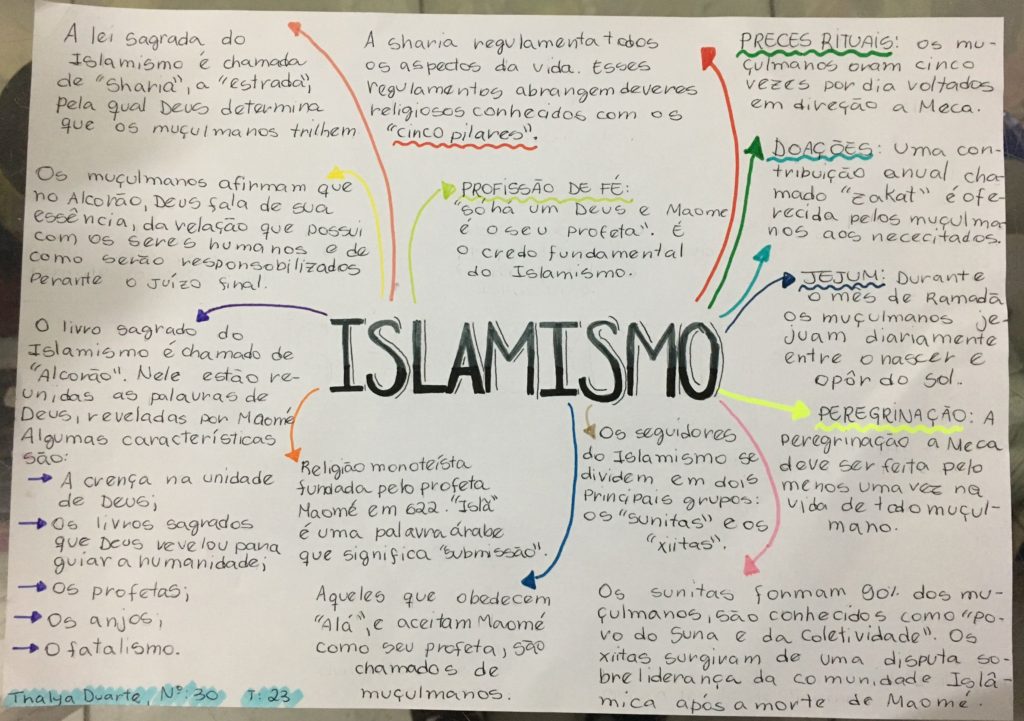 A lei sagrada do
Islamismo é chamada
de "sharia", a "estrada",
pela qual Deus determina
que os muçulmanos trilhem
A sharia regulamenta todos
os aspectos da vida. Esses
regulamentos abrangem deveres
religiosos conhecidos com os
"cinco pilares".
PRECES RITUAIS: os mu-
çulmanos oram cinco
vezes por dia voltados
em direção a Meca.
DOAÇÕES: Uma con-
tribuição anual cha
mado "zakat" é ofe-
recida pelos muçulma
nos aos nececitados.
Os muçulmanos afirmam que
no Alcorão, Deus fala de sua
essência, da relação que possui
com os seres humanos e de
como serão responsobilizados
perante o juízo final.
PROFISSÃO DE FÉ:
"só há um Deus e Maomé
é o seu profeta". É
o credo fundamental
do Islamismo.
JEJUM: Durante
o mês de Ramadã
os muçulmanos je-
juam diariamente
entre o nascer e
o pôr do sol.
ISLAMISMO
O livro sagrado do
Islamismo é chamado de
"Alcorão". Nele estão re-
unidas as palavras de
Deus, reveladas por Maomé
Algumas características
são:
A crença na unidade
de Deus;
Os livros sagrados
que Deus revelou para
guiar a humanidade;
Os profetas;
Os anjos;
O fatalismo.
PEREGRINAÇÃO: A
peregrinação a Meca
deve ser feita pelo
menos uma vez na
vida de todo muçul-
mano.
Religião monoteísta
fundada pelo profeta
Maomé em 622. "Islã"
é uma palavra árabe
que significa "submissão".
Os seguidores
do Islamismo se
dividem em dois
principais grupos:
os "sunitas" e os
"xiitas".
Aqueles que obedecem
"Alá", e aceitam Maomé
como seu profeta, são
chamados de
muçulmanos.
Os sunitas formam 90% dos mu-
çulmanos, são conhecidos como "po-
vo do Suna e da Coletividade". Os
xiitas surgiram de uma disputa so-
bre liderança da comunidade Islâ-
mica após a morte de Maomé.
Thalya Duarte, Nº: 30 T: 23